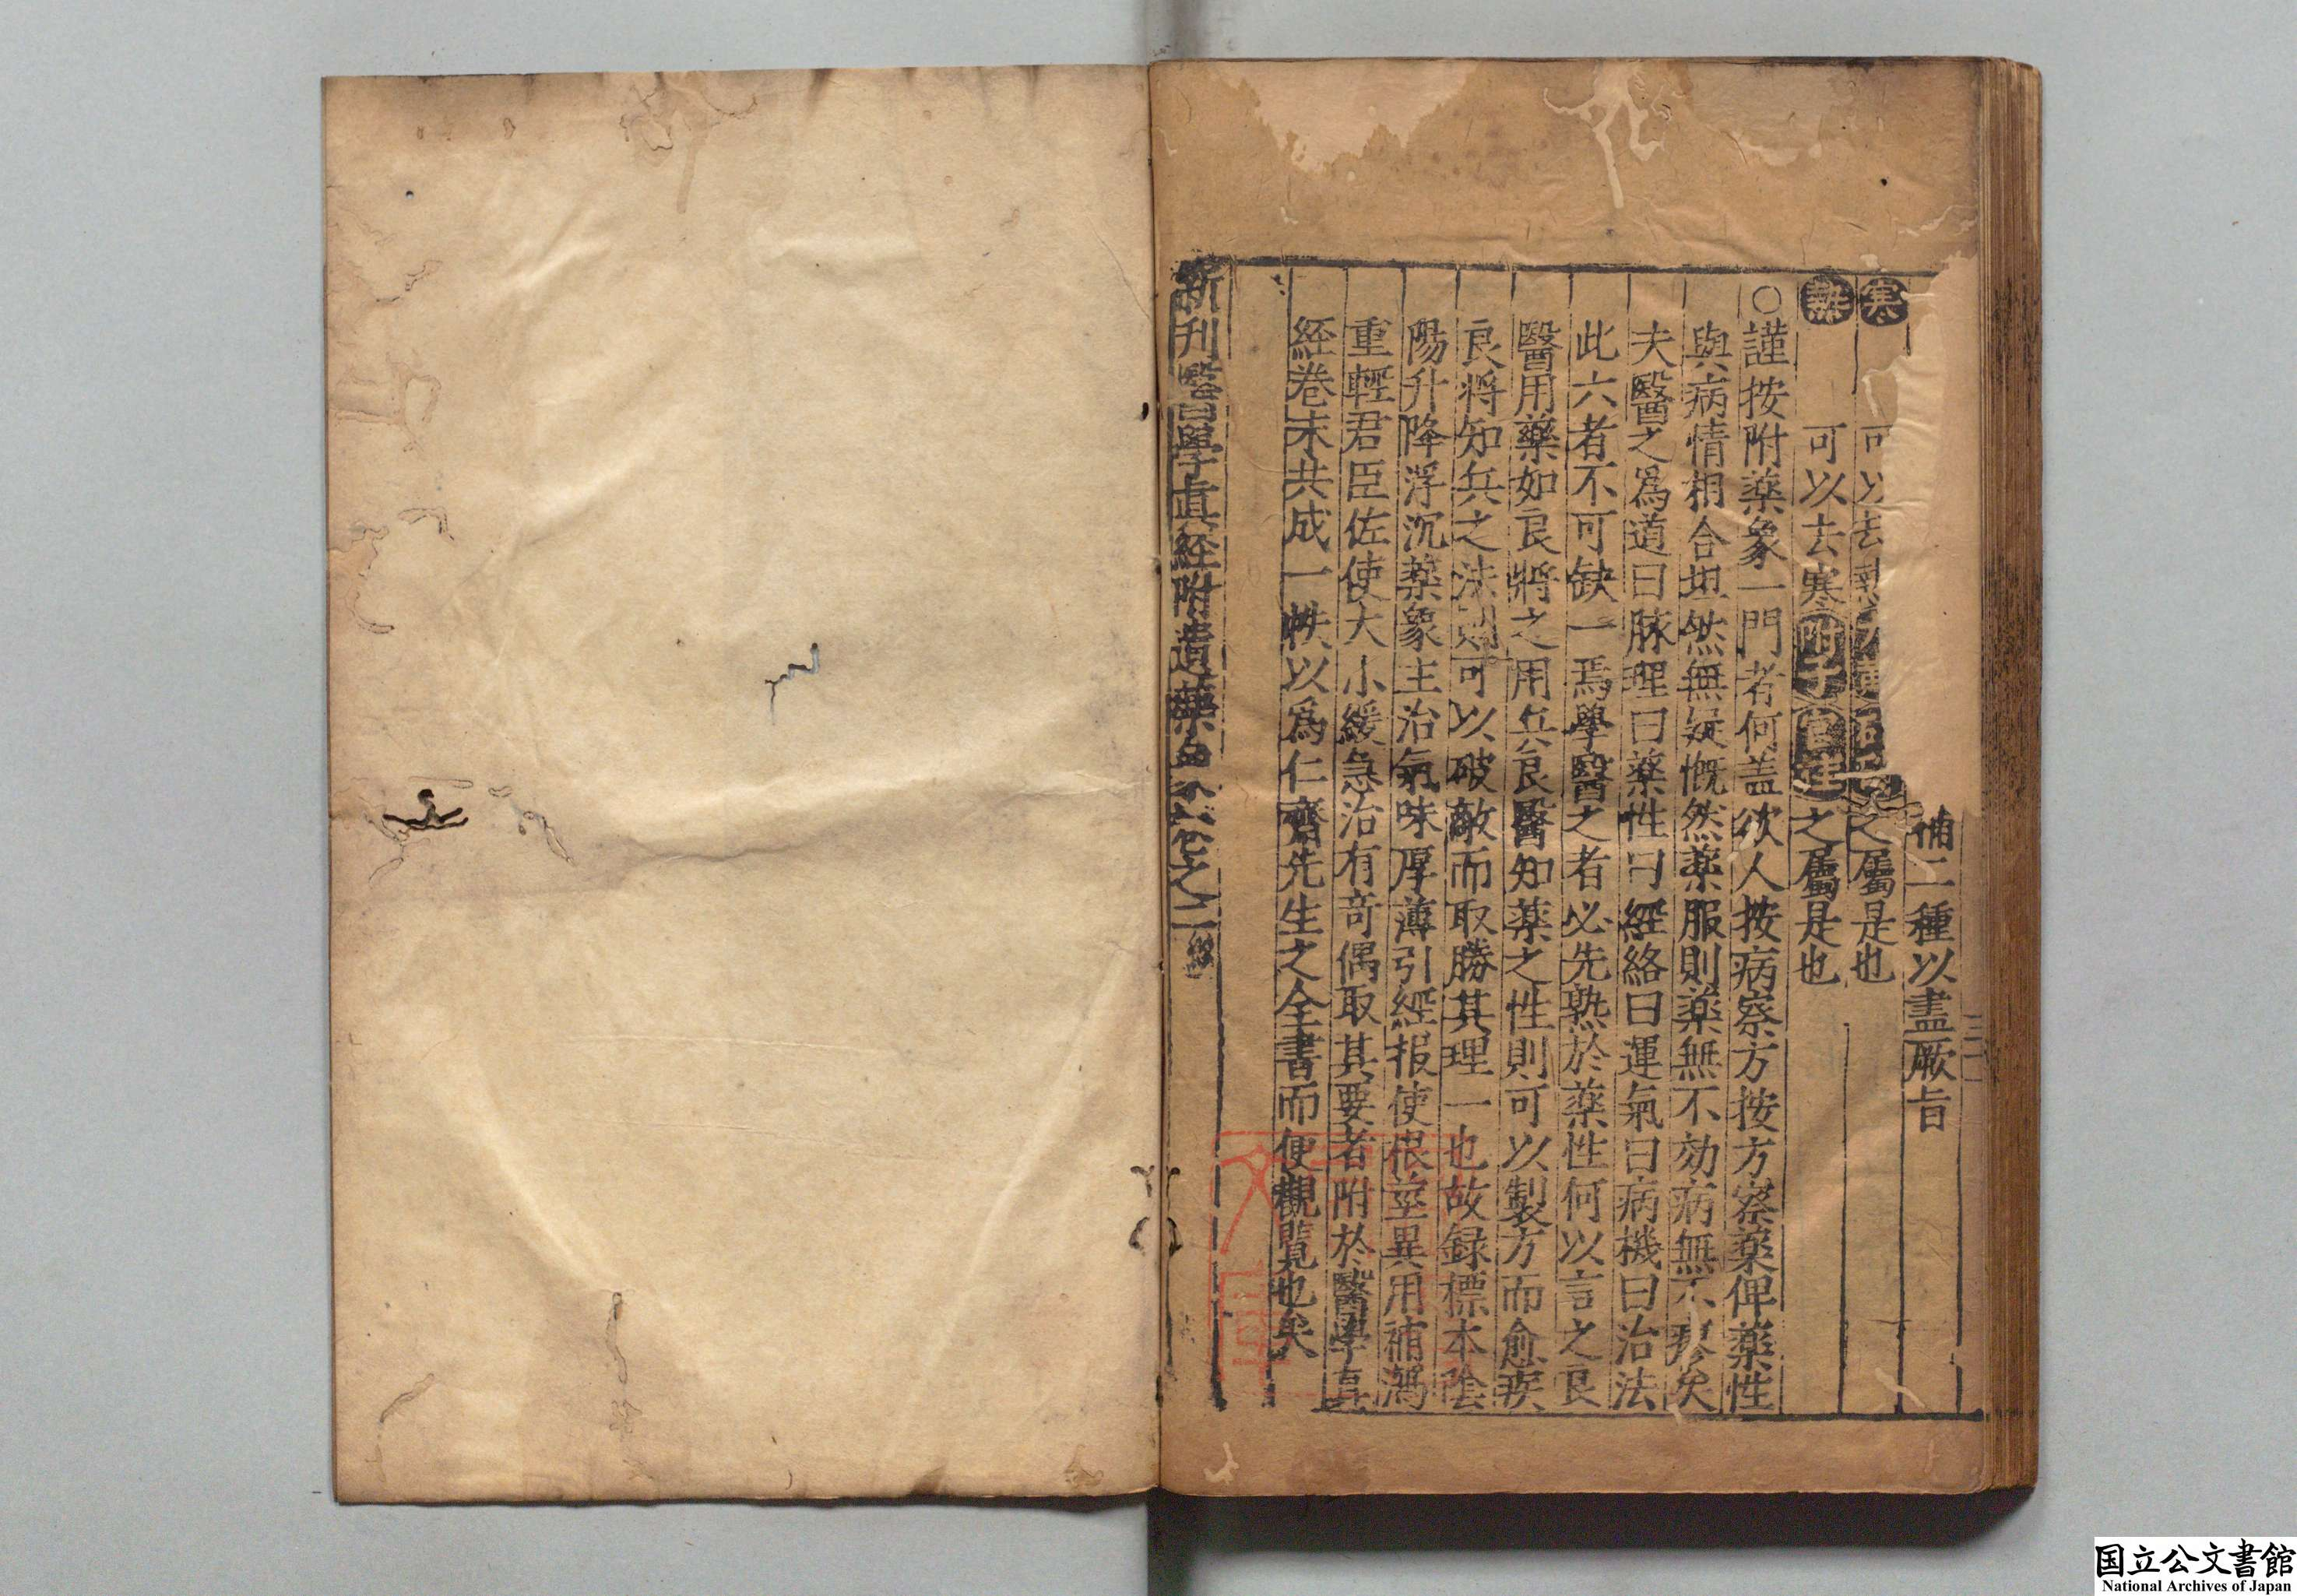 補二種以盡厥旨
寒 可以去熱大黃之屬是也
熱 可以去寒附子官桂之屬是也
○謹按附藥象一門者何盖欲人按病察方按方察藥俾藥性
與病情相合坦然無疑慨然藥服則藥無不効病無不瘳矣
夫醫之爲道曰脉理曰藥性曰經絡曰運氣曰病機曰治法
此六者不可缺一焉學醫之者必先熟於藥性何以言之良
醫用藥如良將之用兵良醫知藥之性則可以製方而愈疾
良將知兵之法則可以破敵而取勝其理一也故録標本陰
陽升降浮沉藥象主治氣味厚薄引經报使根莖異用補瀉
重輕君臣佐使大小緩急治有竒偶取其要者附於醫學真
经卷末共成一帙以爲仁齋先生之全書而便觀覽也矣
新刊醫學真經附遺藥象 卷之二終
三十一
文庫
国立公文書館
National Archives of Japan